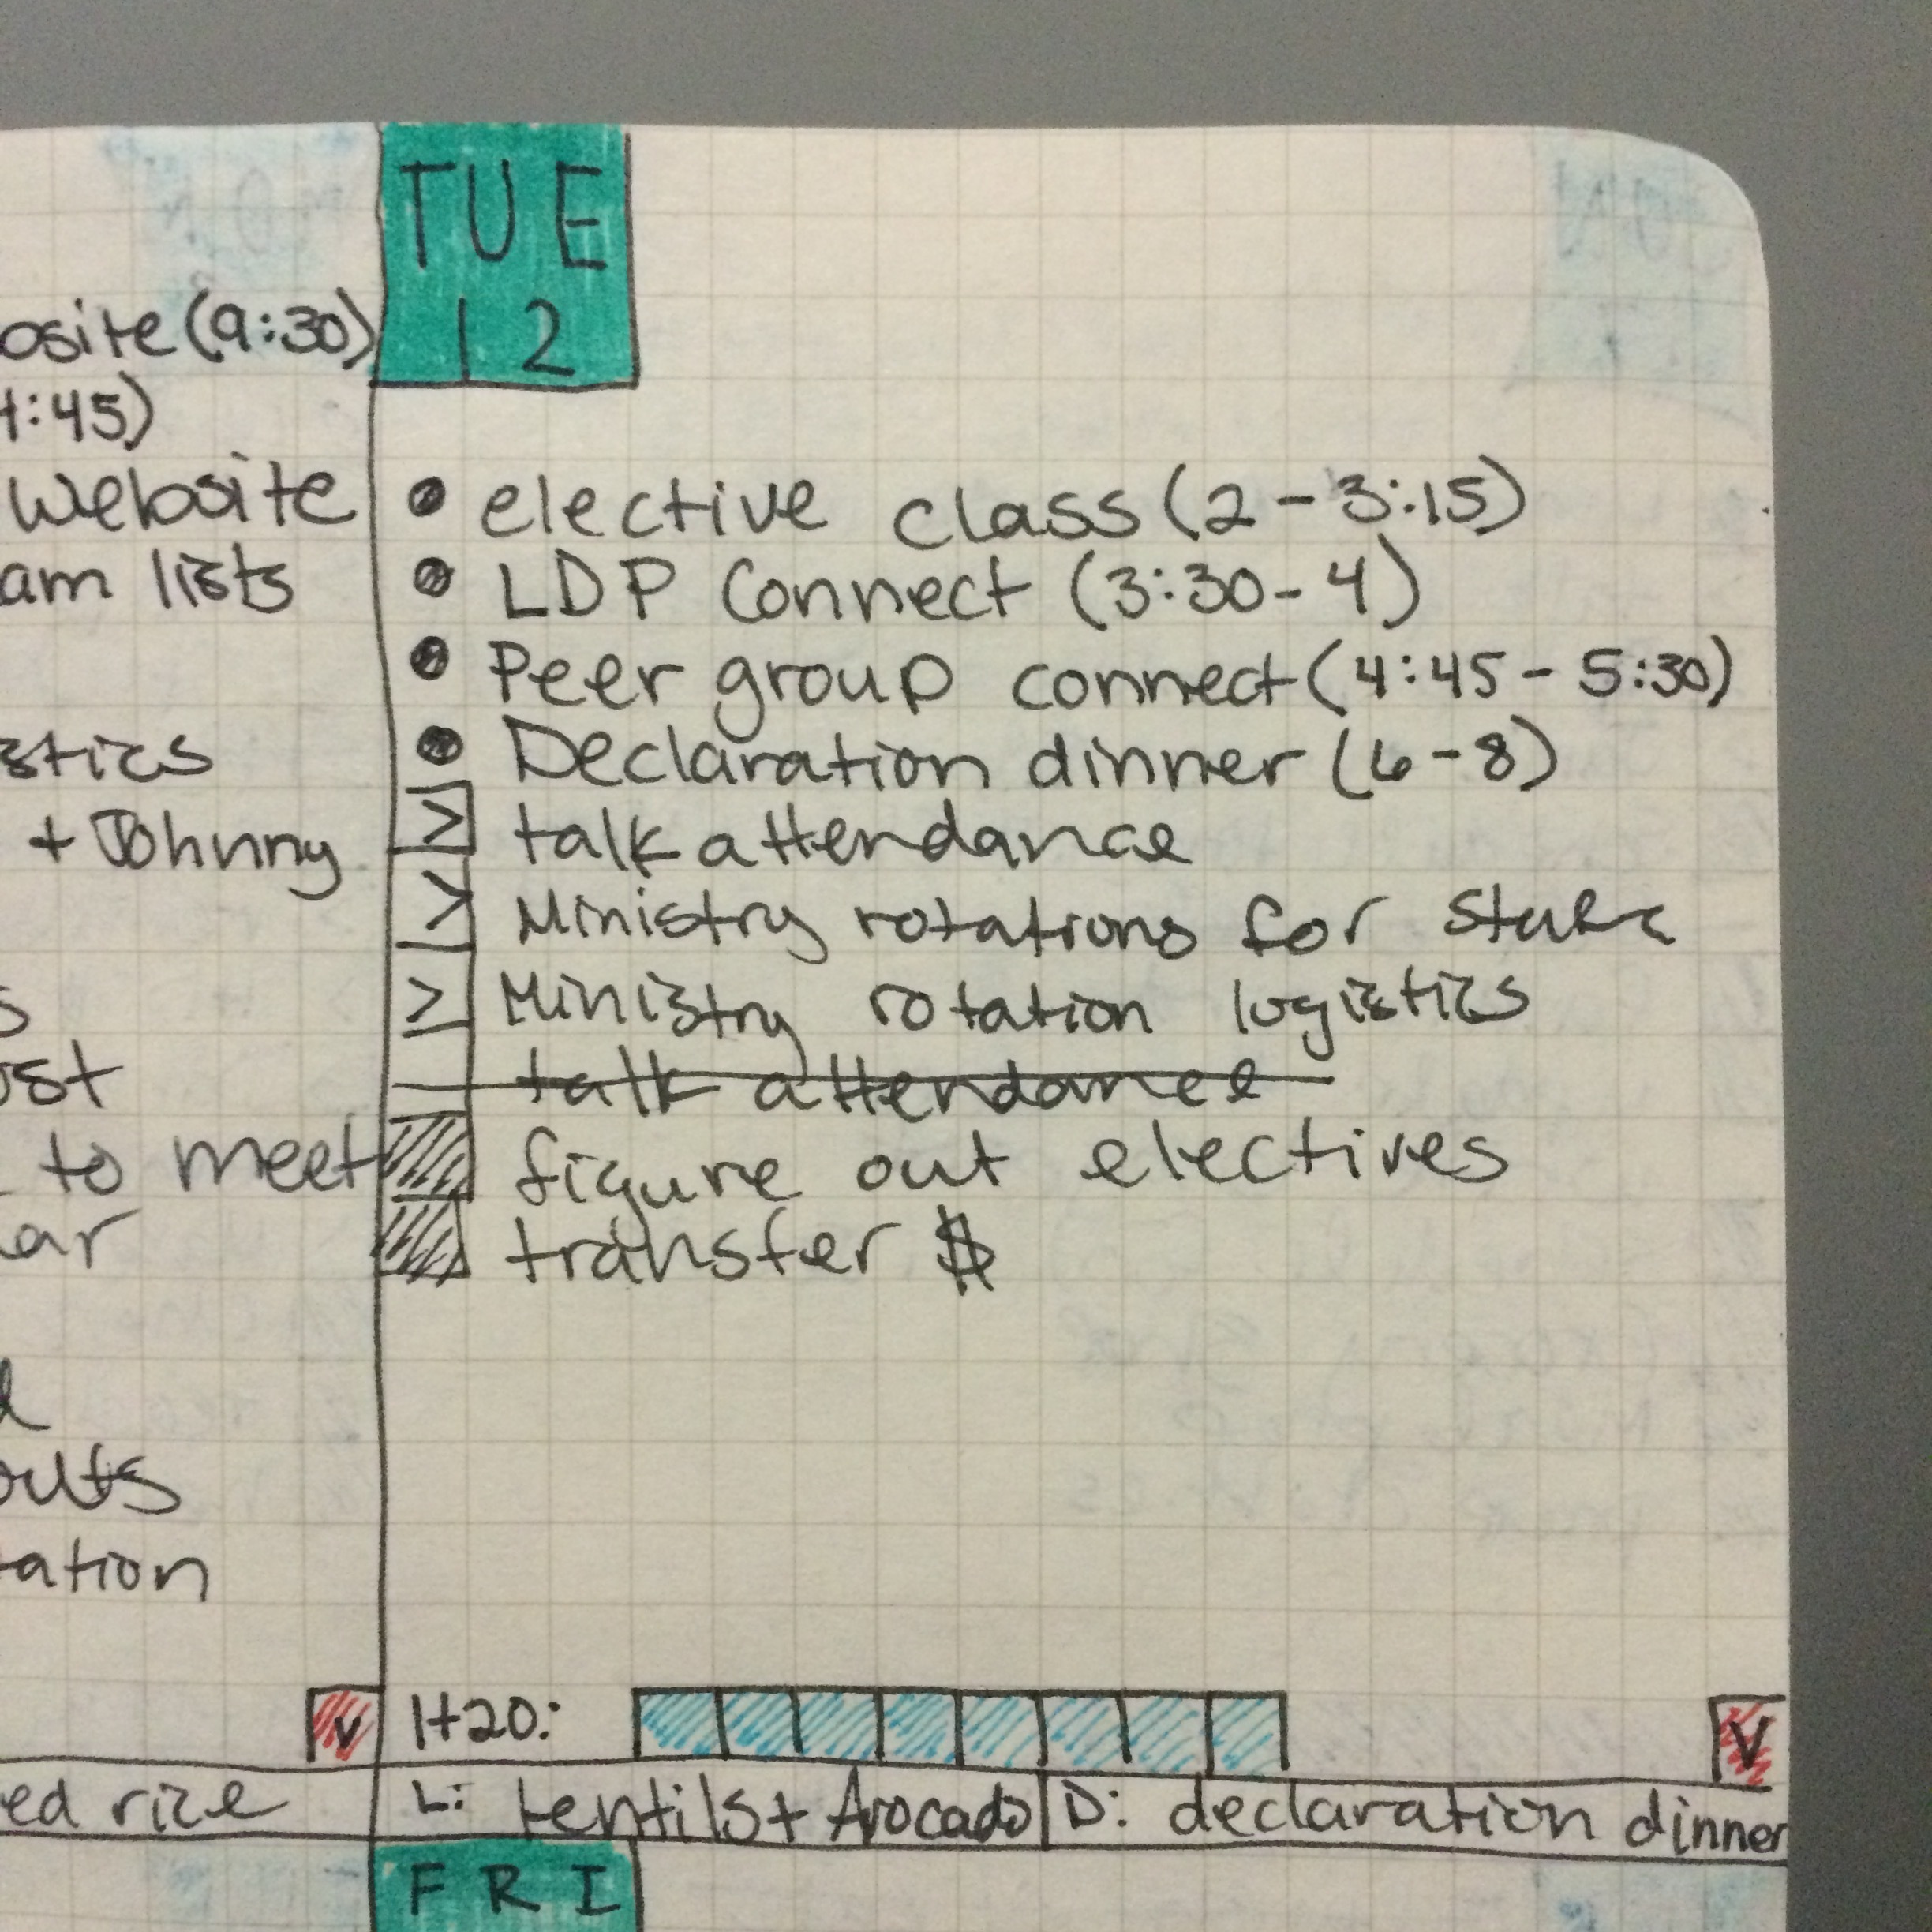 TUE
12
(9:30)
:45)
website
lists
+ Johnny
to meet
• elective class (2 - 3:15)
• LDP Connect (3:30 - 4)
• Peer group connect (4:45 - 5:30)
• Declaration dinner (6 - 8)
> talk attendance
> Ministry rotations for
> Ministry rotation logistics
talk attendance
figure out electives
transfer $
V H20: V
rice L: lentils + Avocado D: declaration dinner
FRI